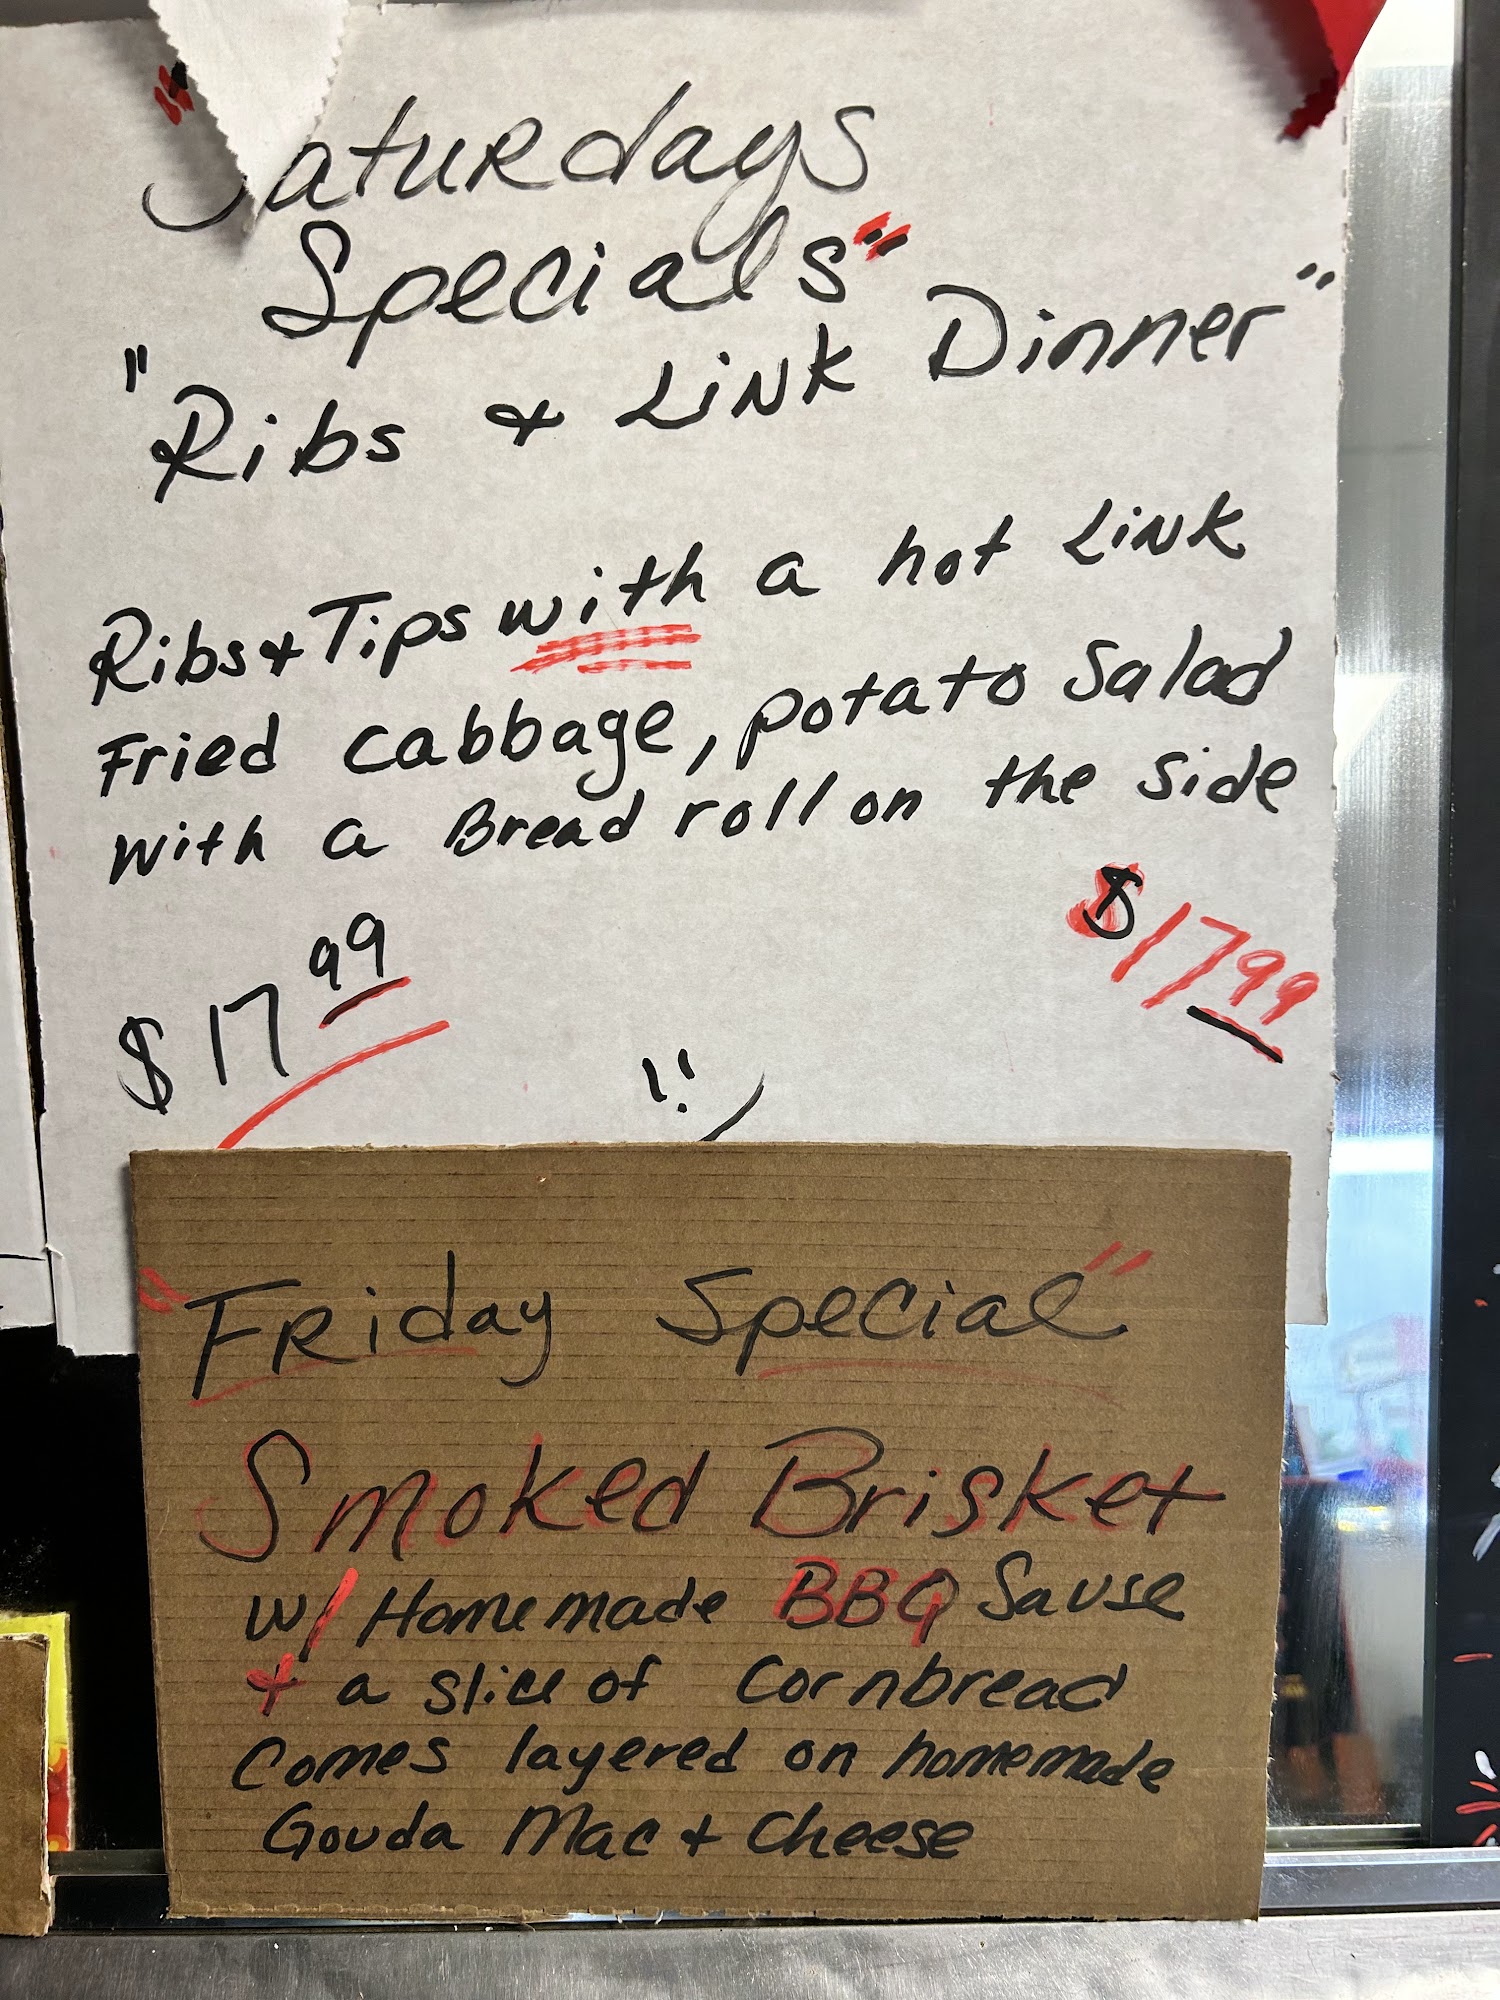 "Saturdays
Specials"
"Ribs & Link Dinner"
Ribs & Tips with a hot Link
Fried cabbage, potato Salad
with a Bread roll on the side
$17.99
$17.99
"Friday Special"
Smoked Brisket
w/ Homemade BBQ Sause
+ a slice of Cornbread
Comes layered on homemade
Gouda Mac & Cheese